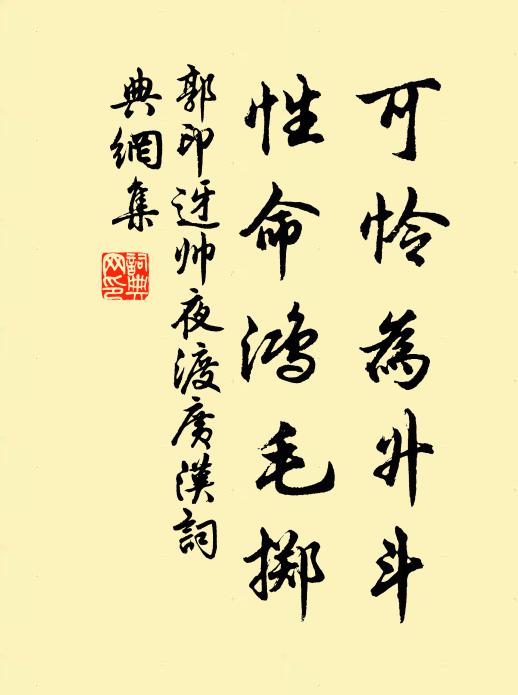 可怜為升斗
性命鴻毛掷
郭印迓帅夜渡广漢詞
典網集
詞典网印